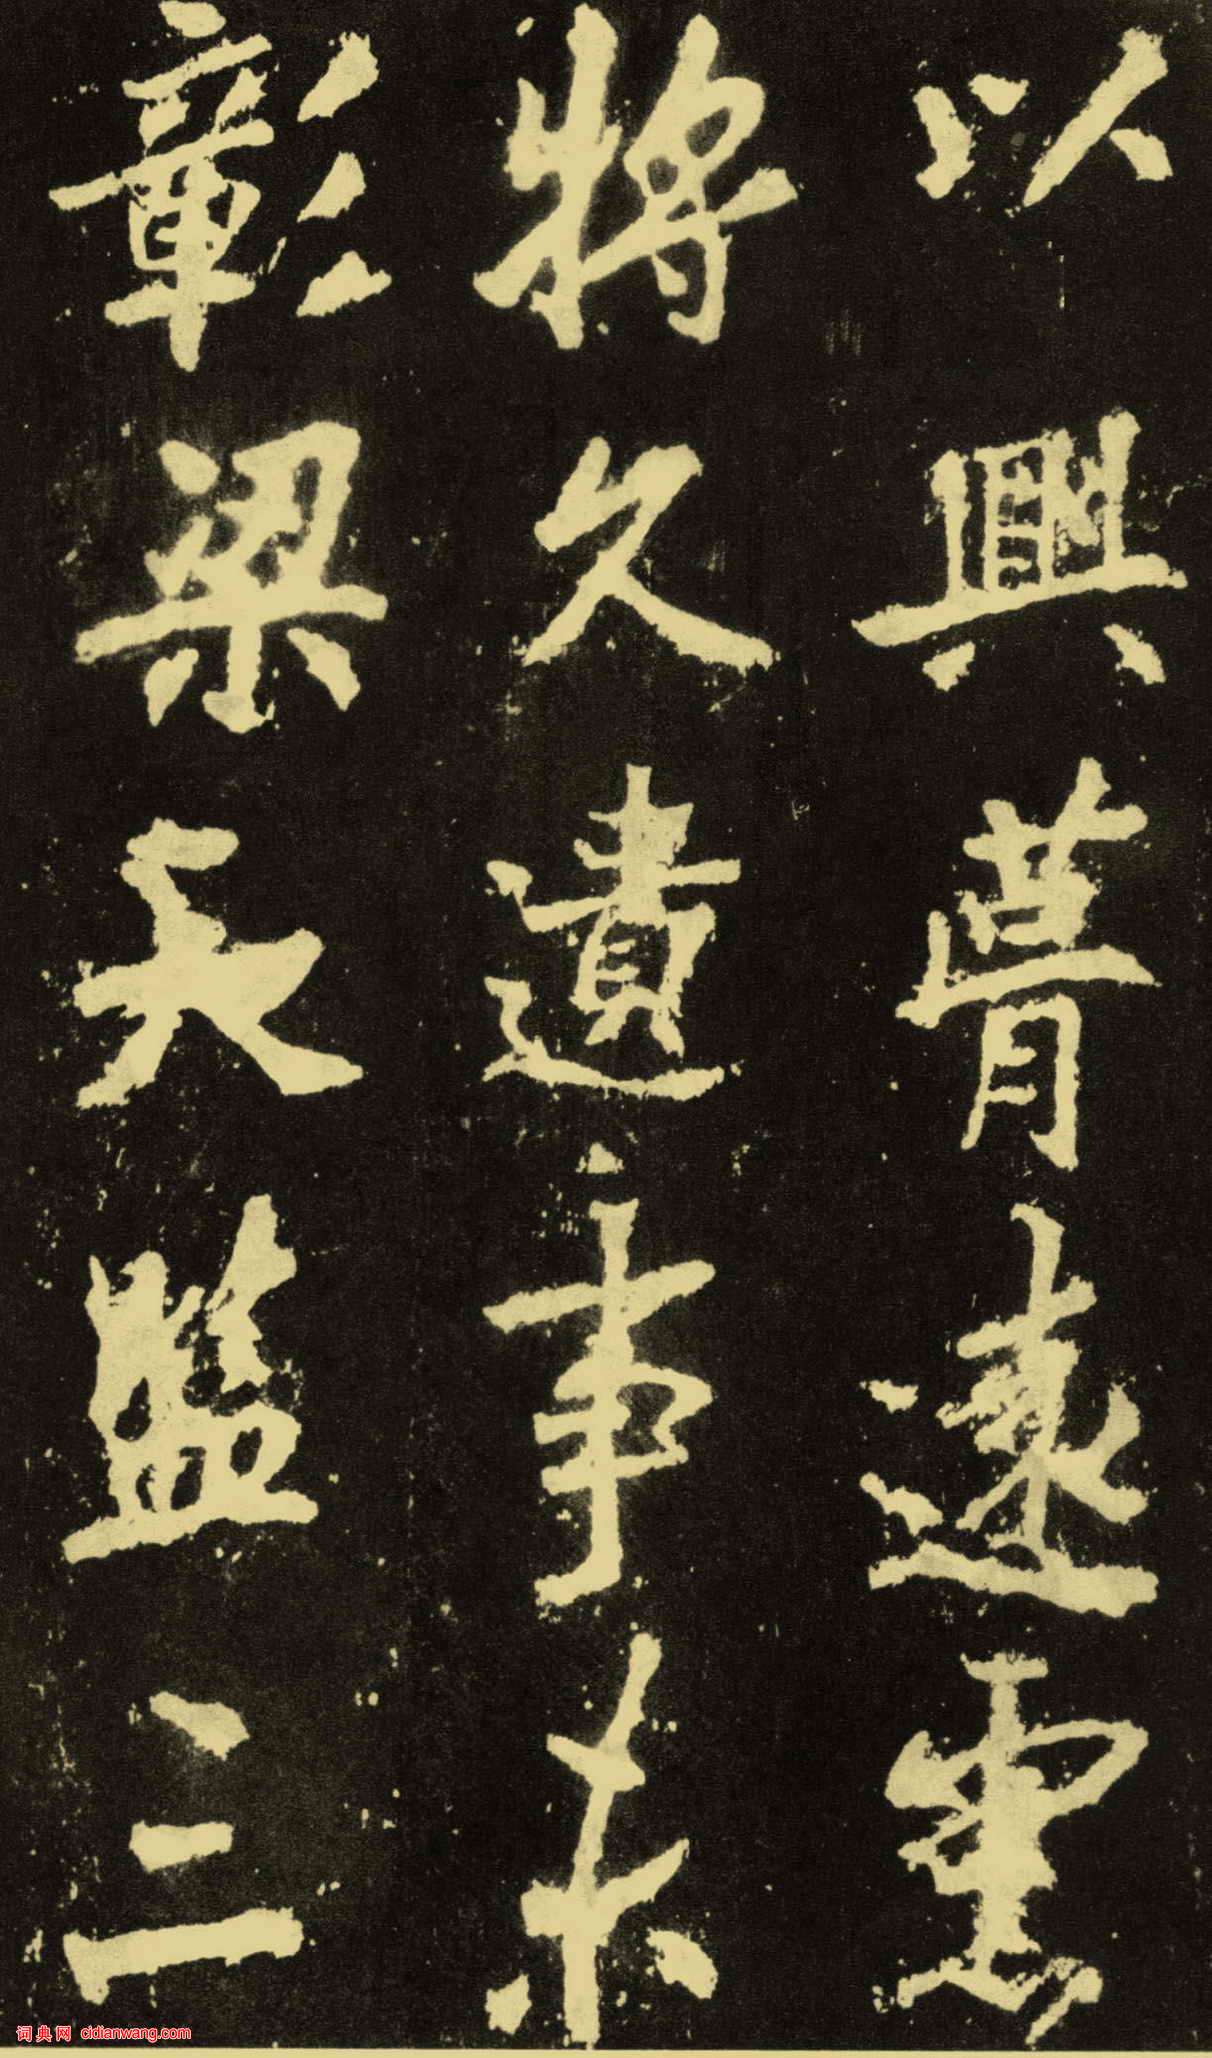 以興詧遠靈
將久遺事未
彰梁天監三
词典网 cidianwang.com